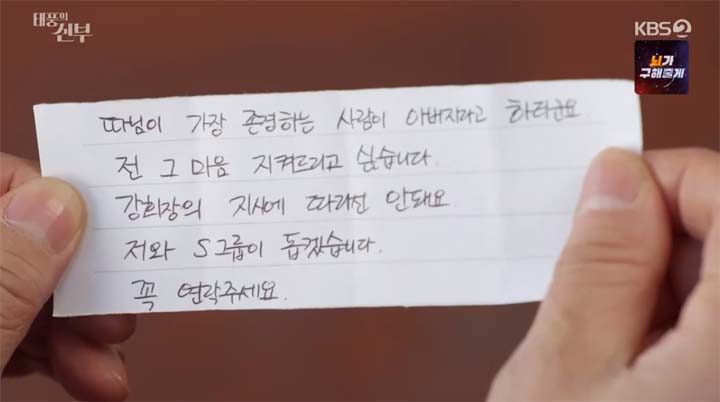 태풍의
신부
KBS2
뇌가
구해줄게
따님이 가장 존경하는 사람이 아버지라고 하더군요
전 그 마음 지켜드리고 싶습니다.
강회장의 지시에 따라선 안돼요.
저와 S그룹이 돕겠습니다.
꼭 연락주세요.